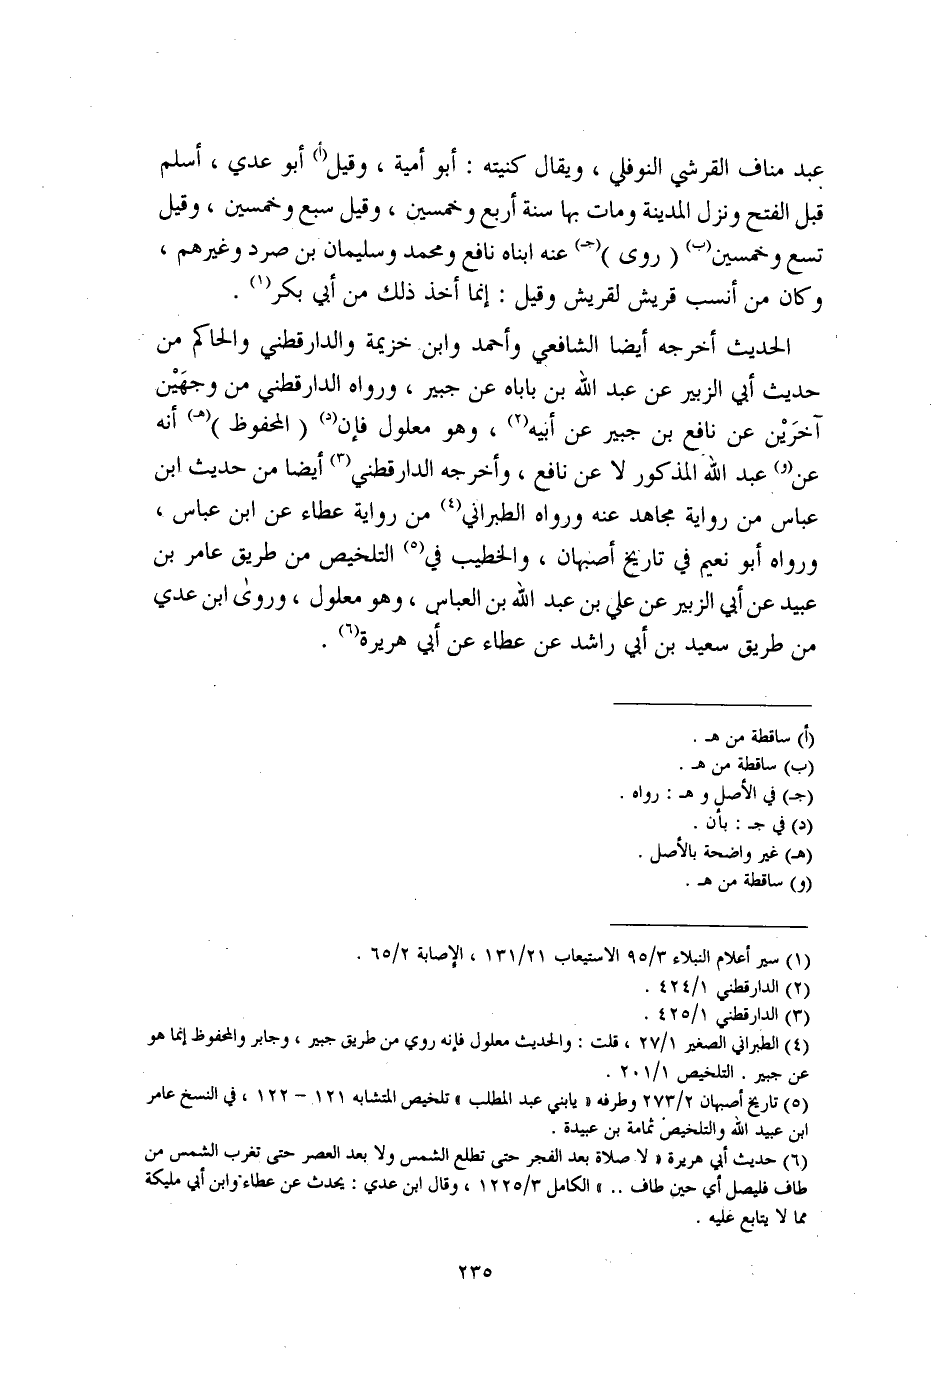 عبد مناف القرشي النوفلي ، ويقال كنيته : أبو أمية ، وقيل(أ) أبو عدي ، أسلم
قبل الفتح ونزل المدينة ومات بها سنة أربع وخمسين ، وقيل سبع وخمسين ، وقيل
تسع وخمسين(ب) ( روى )(جـ) عنه ابناه نافع ومحمد وسليمان بن صرد وغيرهم ،
وكان من أنسب قريش لقريش وقيل : إنما أخذ ذلك من أبي بكر(١) .
الحديث أخرجه أيضا الشافعي وأحمد وابن خزيمة والدارقطني والحاكم من
حديث أبي الزبير عن عبد الله بن باباه عن جبير ، ورواه الدارقطني من وجهَيْن
آخرَيْن عن نافع بن جبير عن أبيه(٢) ، وهو معلول فإن(د) ( المحفوظ )(هـ) أنه
عن(و) عبد الله المذكور لا عن نافع ، وأخرجه الدارقطني(٣) أيضا من حديث ابن
عباس من رواية مجاهد عنه ورواه الطبراني(٤) من رواية عطاء عن ابن عباس ،
ورواه أبو نعيم في تاريخ أصبهان ، والخطيب في(٥) التلخيص من طريق عامر بن
عبيد عن أبي الزبير عن علي بن عبد الله بن العباس ، وهو معلول ، وروىٰ ابن عدي
من طريق سعيد بن أبي راشد عن عطاء عن أبي هريرة(٦) .
(أ) ساقطة من هـ .
(ب) ساقطة من هـ .
(جـ) في الأصل و هـ : رواه .
(د) في جـ : بأن .
(هـ) غير واضحة بالأصل .
(و) ساقطة من هـ .
(١) سير أعلام النبلاء ٩٥/٣ الاستيعاب ١٣١/٢١ ، الإصابة ٦٥/٢ .
(٢) الدارقطني ٤٢٤/١ .
(٣) الدارقطني ٤٢٥/١ .
(٤) الطبراني الصغير ٢٧/١ ، قلت : والحديث معلول فإنه روي من طريق جبير ، وجابر والمحفوظ إنما هو
عن جبير . التلخيص ٢٠١/١ .
(٥) تاريخ أصبهان ٢٧٣/٢ وطرفه « يابني عبد المطلب » تلخيص المتشابه ١٢١ - ١٢٢ ، في النسخ عامر
ابن عبيد الله والتلخيص ثمامة بن عبيدة .
(٦) حديث أبي هريرة « لا صلاة بعد الفجر حتى تطلع الشمس ولا بعد العصر حتى تغرب الشمس من
طاف فليصل أي حين طاف .. » الكامل ١٢٢٥/٣ ، وقال ابن عدي : يحدث عن عطاء وابن أبي مليكة
مما لا يتابع عليه .
٢٣٥